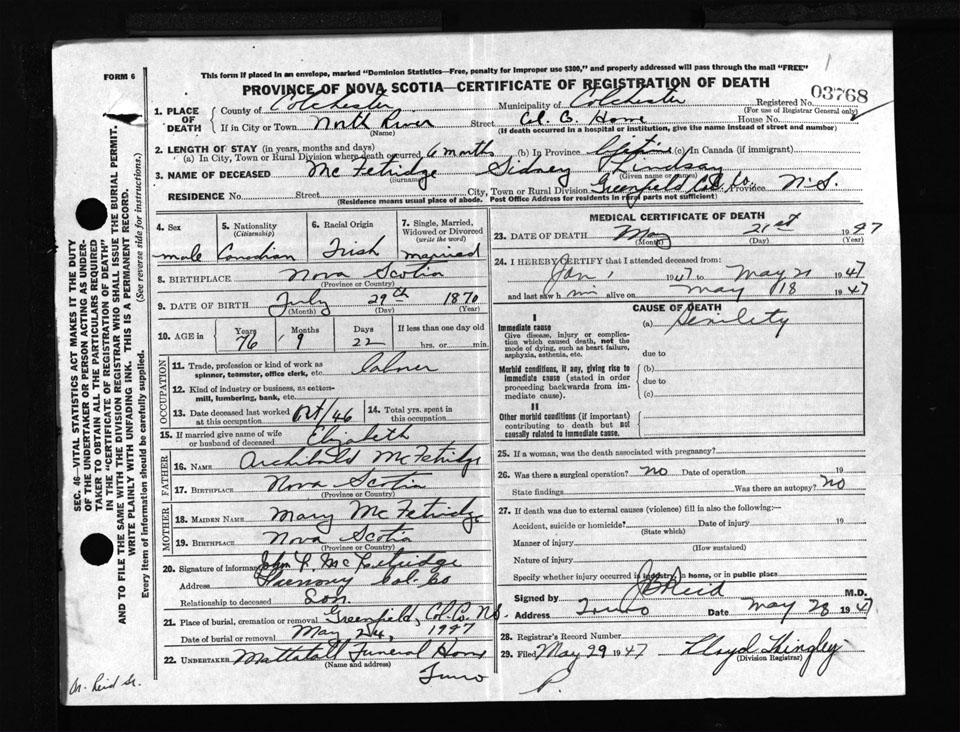 FORM 6
This form if placed in an envelope, marked "Dominion Statistics—Free, penalty for improper use $300," and properly addressed will pass through the mail "FREE"
PROVINCE OF NOVA SCOTIA—CERTIFICATE OF REGISTRATION OF DEATH
03768
1. PLACE OF DEATH
County of Colchester Municipality of Colchester Registered No.
(For use of Registrar General only)
If in City or Town North River Street Col. Co. Home House No.
(Name) (If death occurred in a hospital or institution, give the name instead of street and number)
2. LENGTH OF STAY (in years, months and days)
(a) In City, Town or Rural Division where death occurred 6 months (b) In Province Lifetime (c) In Canada (if immigrant)
3. NAME OF DECEASED McFetridge Sidney Lindsay
(Surname) (Given name or names)
RESIDENCE No. Street City, Town or Rural Division Greenfield Col. Co. Province N.S.
(Residence means usual place of abode. Post Office Address for residents in rural parts not sufficient)
4. Sex
male
5. Nationality
(Citizenship)
Canadian
6. Racial Origin
Irish
7. Single, Married, Widowed or Divorced
(write the word)
married
8. BIRTHPLACE Nova Scotia
(Province or Country)
9. DATE OF BIRTH July 29th 1870
(Month) (Day) (Year)
10. AGE in
Years 76
Months 9
Days 22
If less than one day old
hrs. or min.
OCCUPATION
11. Trade, profession or kind of work as spinner, teamster, office clerk, etc.
12. Kind of industry or business, as cotton-mill, lumbering, bank, etc.
13. Date deceased last worked at this occupation Oct/46
14. Total yrs. spent in this occupation
15. If married give name of wife or husband of deceased Elizabeth
FATHER
16. NAME Archibald McFetridge
17. BIRTHPLACE Nova Scotia
(Province or Country)
MOTHER
18. MAIDEN NAME Mary McFetridge
19. BIRTHPLACE Nova Scotia
(Province or Country)
20. Signature of informant John L. McFetridge
Address Harmony Col. Co
Relationship to deceased Son
21. Place of burial, cremation or removal Greenfield, Col. Co. N.S.
Date of burial or removal May 24, 1947
22. UNDERTAKER Mattatall Funeral Home
(Name and address)
Truro
MEDICAL CERTIFICATE OF DEATH
23. DATE OF DEATH May 21st 1947
(Month) (Day) (Year)
24. I HEREBY CERTIFY that I attended deceased from:
Jan 1 1947 to May 21 1947
and last saw him alive on May 18 1947
CAUSE OF DEATH
I
Immediate cause
Give disease, injury or complication which caused death, not the mode of dying, such as heart failure, asphyxia, asthenia, etc.
(a) Senility
due to
Morbid conditions, if any, giving rise to immediate cause (stated in order proceeding backwards from immediate cause).
(b)
due to
(c)
II
Other morbid conditions (if important) contributing to death but not causally related to immediate cause.
25. If a woman, was the death associated with pregnancy?
26. Was there a surgical operation? no Date of operation 19
State findings Was there an autopsy? no
27. If death was due to external causes (violence) fill in also the following:—
Accident, suicide or homicide? Date of injury 19
(State which)
Manner of injury
(How sustained)
Nature of injury
Specify whether injury occurred in industry, in home, or in public place
Signed by J B Reid M.D.
Address Truro Date May 28 1947
28. Registrar's Record Number
29. Filed May 29 1947 Lloyd
(Division Registrar)
P.
SEC. 46—VITAL STATISTICS ACT MAKES IT THE DUTY
OF THE UNDERTAKER OR PERSON ACTING AS UNDER-
TAKER TO OBTAIN ALL THE PARTICULARS REQUIRED
IN THE "CERTIFICATE OF REGISTRATION OF DEATH"
AND TO FILE THE SAME WITH THE DIVISION REGISTRAR WHO SHALL ISSUE THE BURIAL PERMIT.
WRITE PLAINLY WITH UNFADING INK. THIS IS A PERMANENT RECORD.
Every item of information should be carefully supplied. (See reverse side for instructions.)